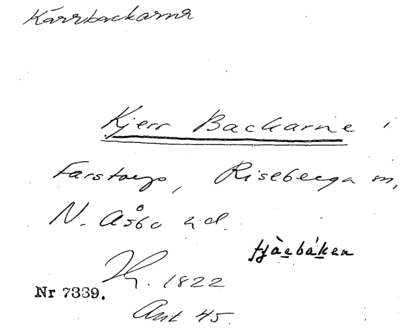 Kärrbackarna
Kjerr Backarne i
Farstorp, Riseberga sn,
N. Åsbo hd.
tjärbáken
1822
Nr 7339.
Ant 45.